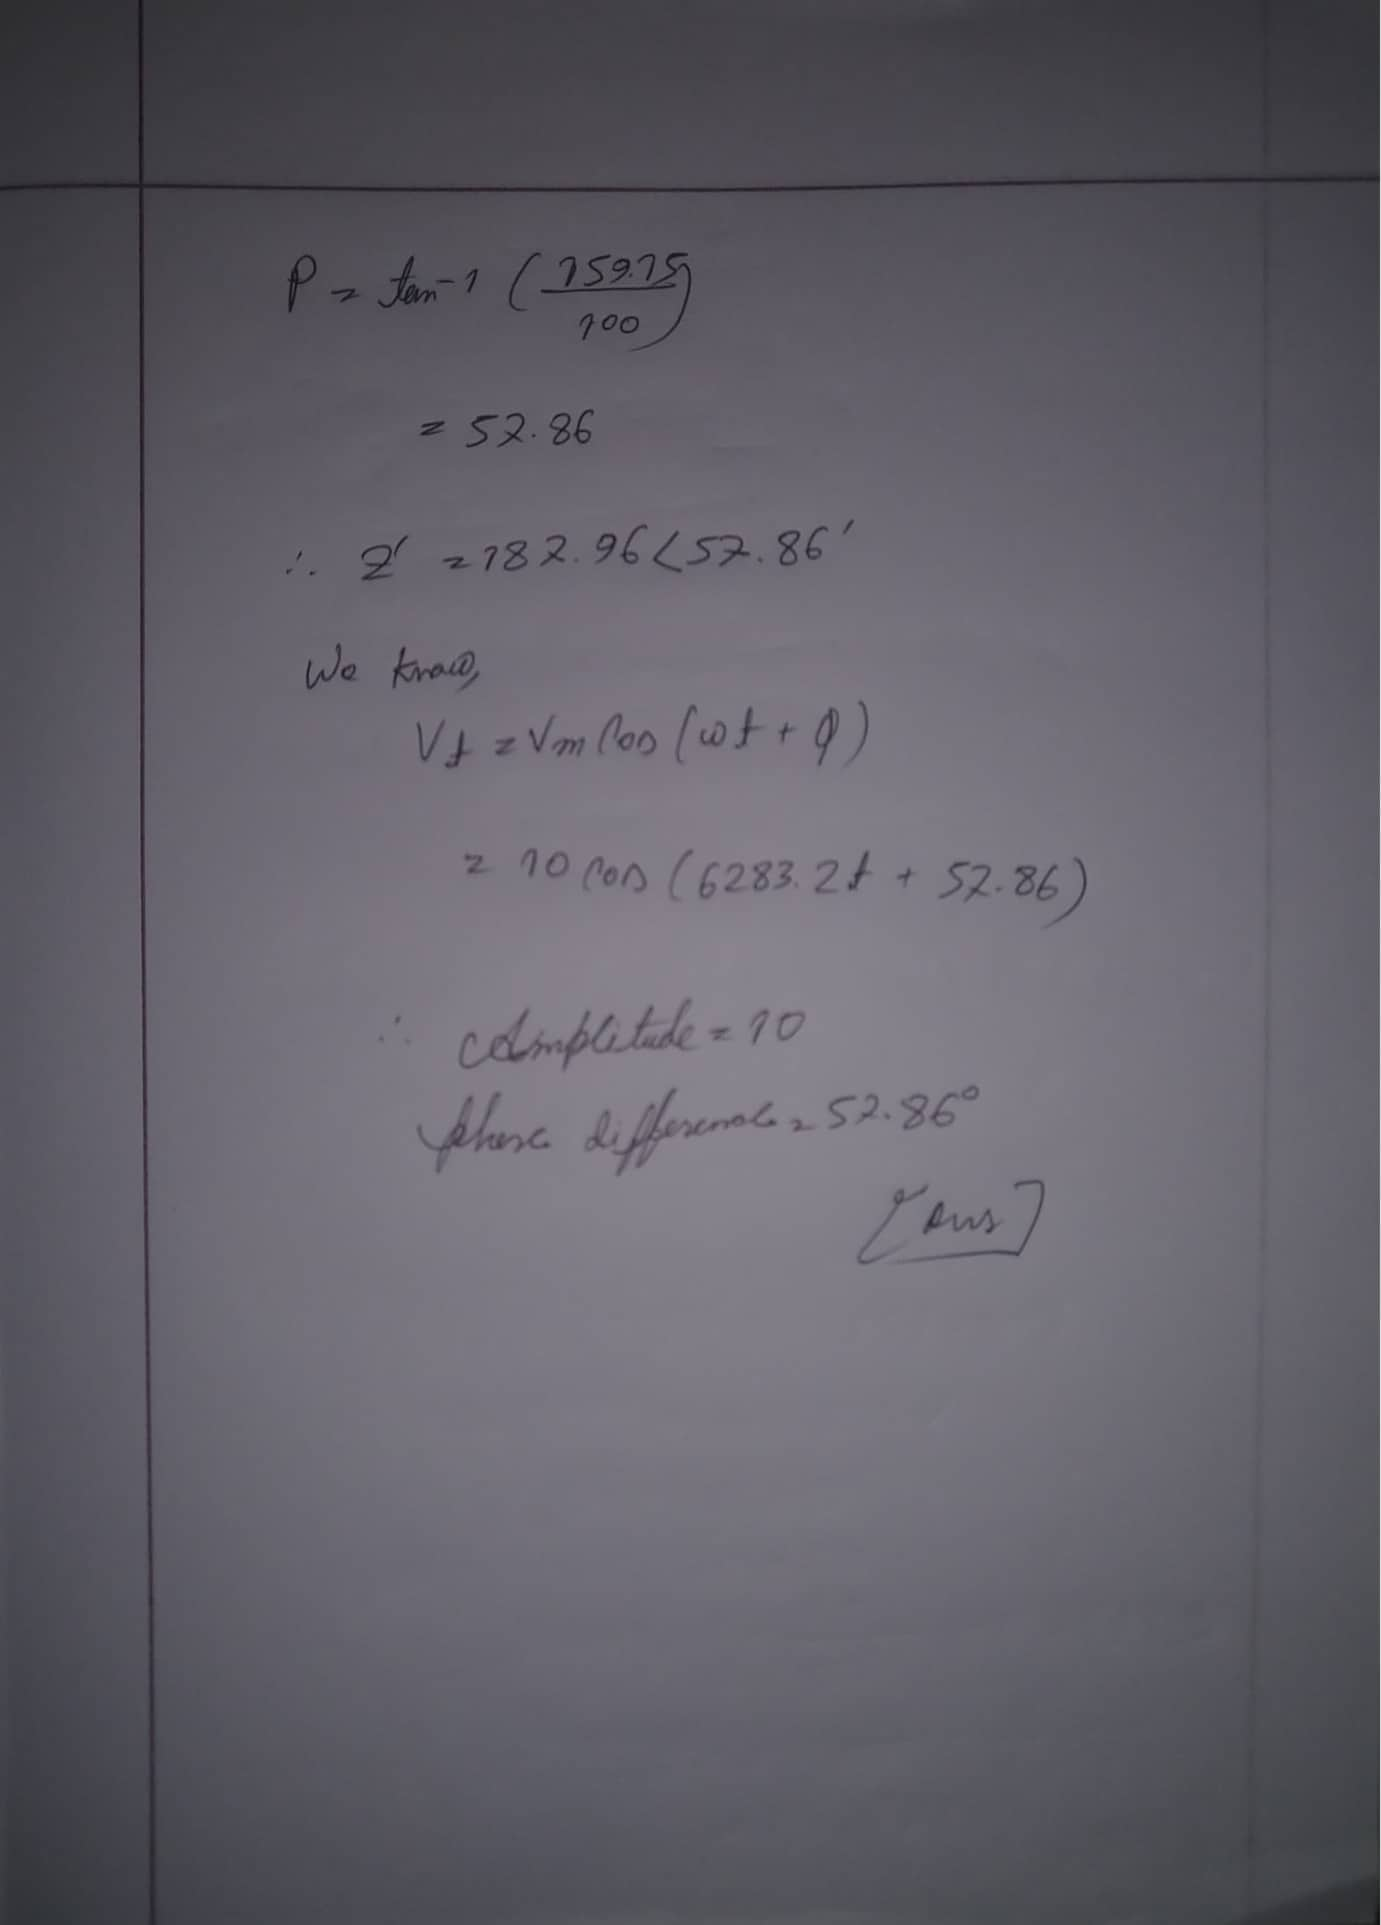 φ = tan-1 (159.15/100)
= 57.86
∴ Z = 187.96<57.86'
We know,
Vt = Vm Cos (ωt + φ)
= 10 Cos (6283.2t + 57.86)
∴ Amplitude = 10
phase difference = 57.86°
[Ans]